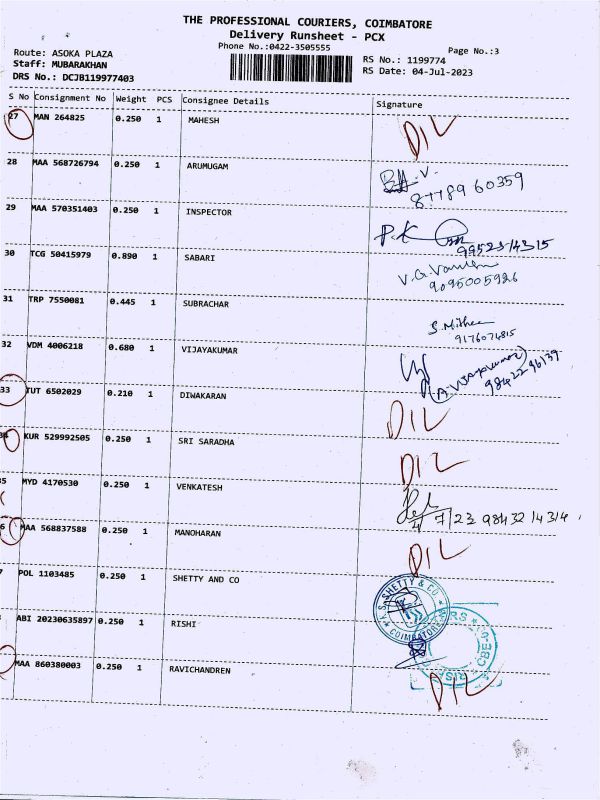 THE PROFESSIONAL COURIERS, COIMBATORE
Delivery Runsheet - PCX
Phone No.:0422-3505555
Page No.:3
Route: ASOKA PLAZA
Staff: MUBARAKHAN
DRS No.: DCJB119977403
RS No.: 1199774
RS Date: 04-Jul-2023
S No Consignment No Weight PCS Consignee Details Signature
27 MAN 264825 0.250 1 MAHESH DIL
28 MAA 568726794 0.250 1 ARUMUGAM
8778960359
29 MAA 570351403 0.250 1 INSPECTOR P.K
9952314315
30 TCG 50415979 0.890 1 SABARI V.G.
9095005926
31 TRP 7550081 0.445 1 SUBRACHAR
9176074815
32 VDM 4006218 0.680 1 VIJAYAKUMAR (A.Vijayakumar)
9842296139
33 TUT 6502029 0.210 1 DIWAKARAN DIL
KUR 529992505 0.250 1 SRI SARADHA DIL
5 MYD 4170530 0.250 1 VENKATESH
4/7/23 9843214314
6 MAA 568837588 0.250 1 MANOHARAN DIL
POL 1103485 0.250 1 SHETTY AND CO
SHETTY & CO. * COIMBATORE
ABI 20230635897 0.250 1 RISHI
MAA 860380003 0.250 1 RAVICHANDREN DIL